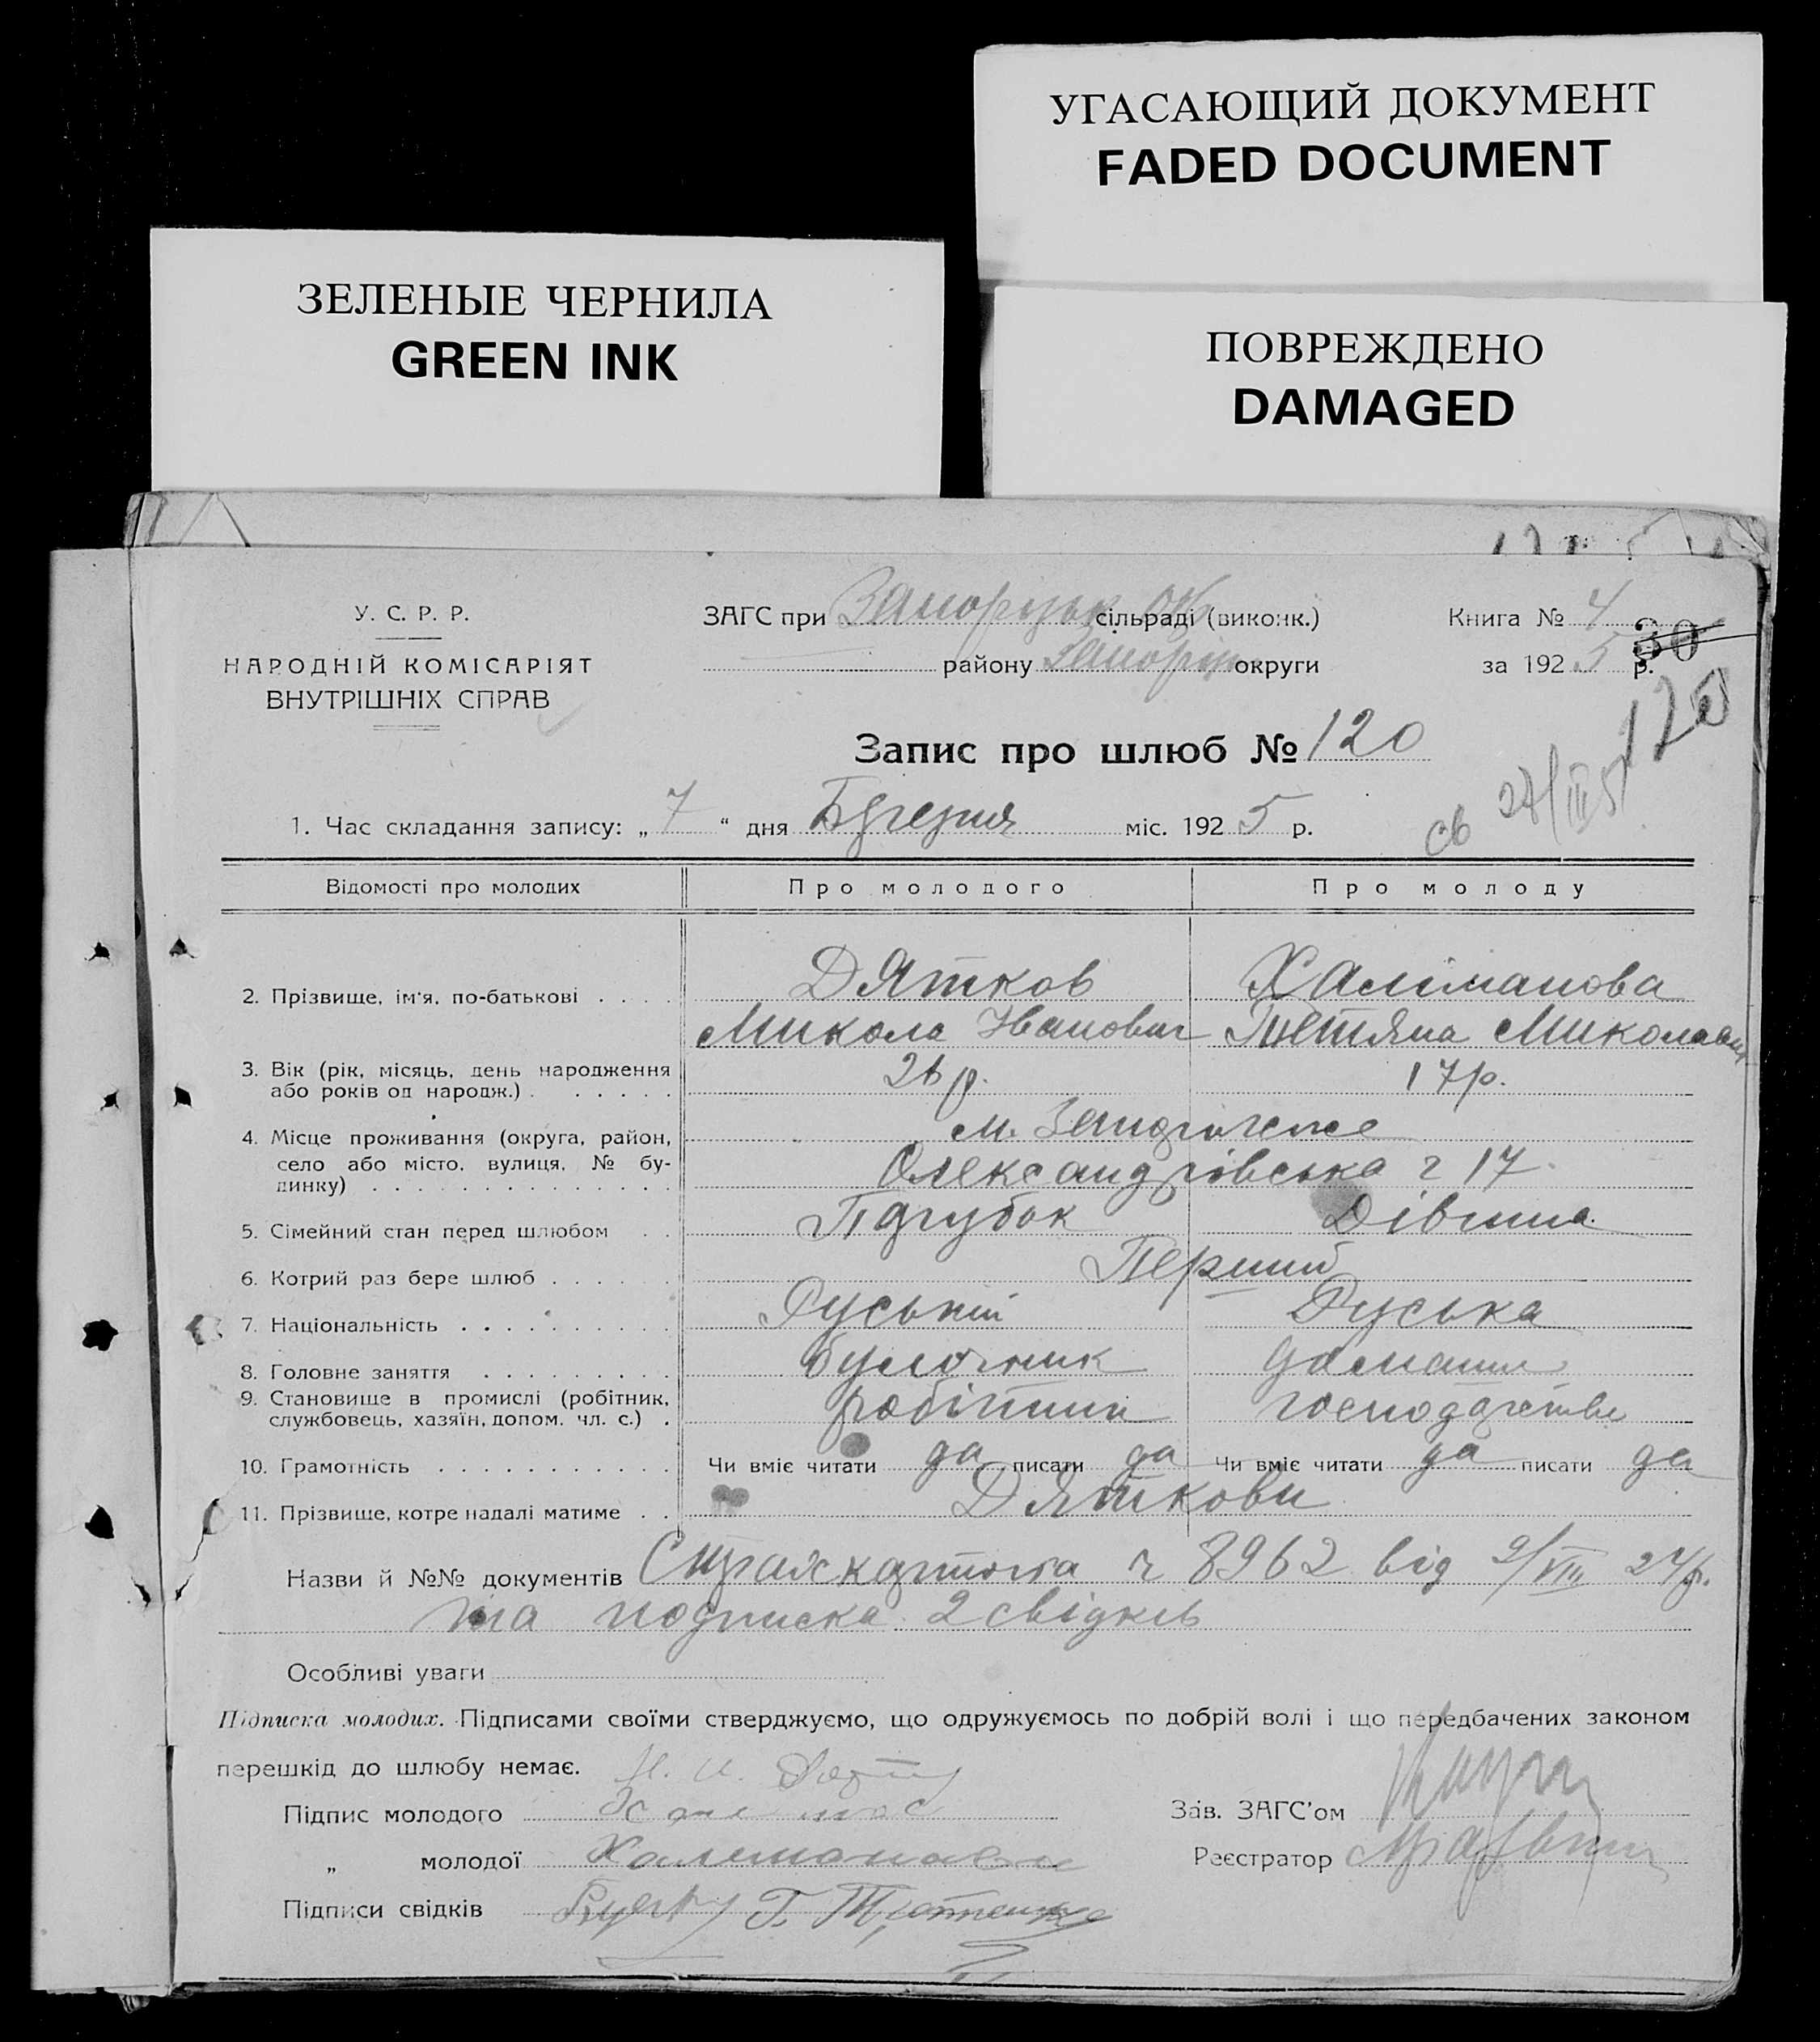 УГАСАЮЩИЙ ДОКУМЕНТ
FADED DOCUMENT
ЗЕЛЕНЫЕ ЧЕРНИЛА
GREEN INK
ПОВРЕЖДЕНО
DAMAGED
У. С. Р. Р.
НАРОДНІЙ КОМІСАРІЯТ
ВНУТРІШНІХ СПРАВ
ЗАГС при сільраді (виконк.)
району округи
Книга № 4
за 192 5 р.
30
120
Запис про шлюб № 120
св 27/III 5
1. Час складання запису: „ 7 “ дня Березня міс. 192 5 р.
Відомості про молодих Про молодого Про молоду
2. Прізвище, ім'я, по-батькові . . . . Дятков Халіманова
Микола Іванович Тетяна Миколаевн
3. Вік (рік, місяць, день народження
або років од народж.) . . . . . . 26 р. 17 р.
4. Місце проживання (округа, район, м. Запоріжже
село або місто, вулиця, № бу-
динку) . . . . . . . . . . . . . . Олександрівська 17
5. Сімейний стан перед шлюбом . . Парубок Дівчина
6. Котрий раз бере шлюб . . . . . . Перший
7. Національність . . . . . . . . . . Руський Руська
8. Головне заняття . . . . . . . . . булочник домашн
9. Становище в промислі (робітник,
службовець, хазяїн, допом. чл. с.) . робітник господарстве
10. Грамотність . . . . . . . . . . . Чи вміє читати да писати да Чи вміє читати да писати да
11. Прізвище, котре надалі матиме . . Дяткови
Назви й №№ документів Страхкарточка ч 8962 від 9/VIII 24 р.
та подписка 2 свідків
Особливі уваги
Підписка молодих. Підписами своїми стверджуємо, що одружуємось по добрій волі і що передбачених законом
перешкід до шлюбу немає.
Підпис молодого
Зав. ЗАГС'ом
„ молодої Халиманова
Реєстратор
Підписи свідків